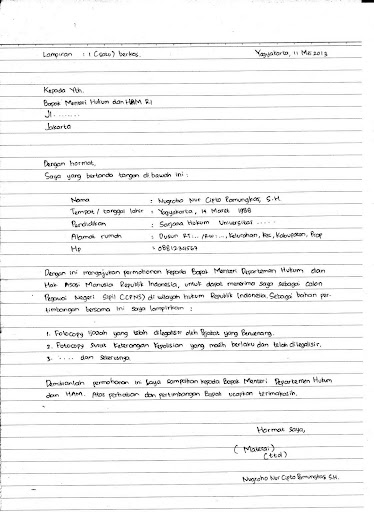 Lampiran : 1 (satu) berkas. Yogyakarta, 11 Mei 2013
Kepada Yth.
Bapak Menteri Hukum dan HAM RI
Jl. ........
Jakarta
Dengan hormat,
Saya yang bertanda tangan di bawah ini :
Nama : Nugroho Nur Cipto Pamungkas, S.H.
Tempat / tanggal lahir : Yogyakarta, 14 Maret 1988
Pendidikan : Sarjana Hukum Universitas .....
Alamat rumah : Dusun RT... /RW..., Kelurahan, Kec, Kabupaten, Prop
Hp : 0881234567
Dengan ini mengajukan permohonan kepada Bapak Menteri Departemen Hukum dan
Hak Asasi Manusia Republik Indonesia, untuk dapat menerima saya sebagai Calon
Pegawai Negeri Sipil (CPNS) di wilayah hukum Republik Indonesia. Sebagai bahan per-
timbangan bersama ini saya lampirkan :
1. Fotocopy ijazah yang telah dilegalisir oleh Pejabat yang Berwenang.
2. Fotocopy Surat Keterangan Kepolisian yang masih berlaku dan telah dilegalisir.
3. ..... dan seterusnya.
Demikianlah permohonan ini saya sampaikan kepada Bapak Menteri Departemen Hukum
dan HAM. Atas perhatian dan pertimbangan Bapak ucapkan terimakasih.
Hormat saya,
( Materai )
(ttd)
Nugroho Nur Cipto Pamungkas S.H.